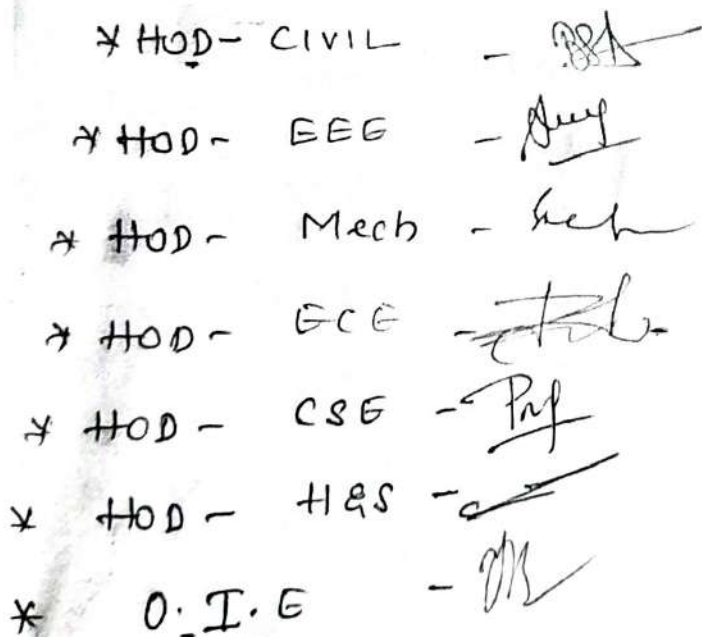 * HOD - CIVIL -
* HOD - EEE -
* HOD - Mech -
* HOD - ECE -
* HOD - CSE -
* HOD - H&S -
* O.I.E -